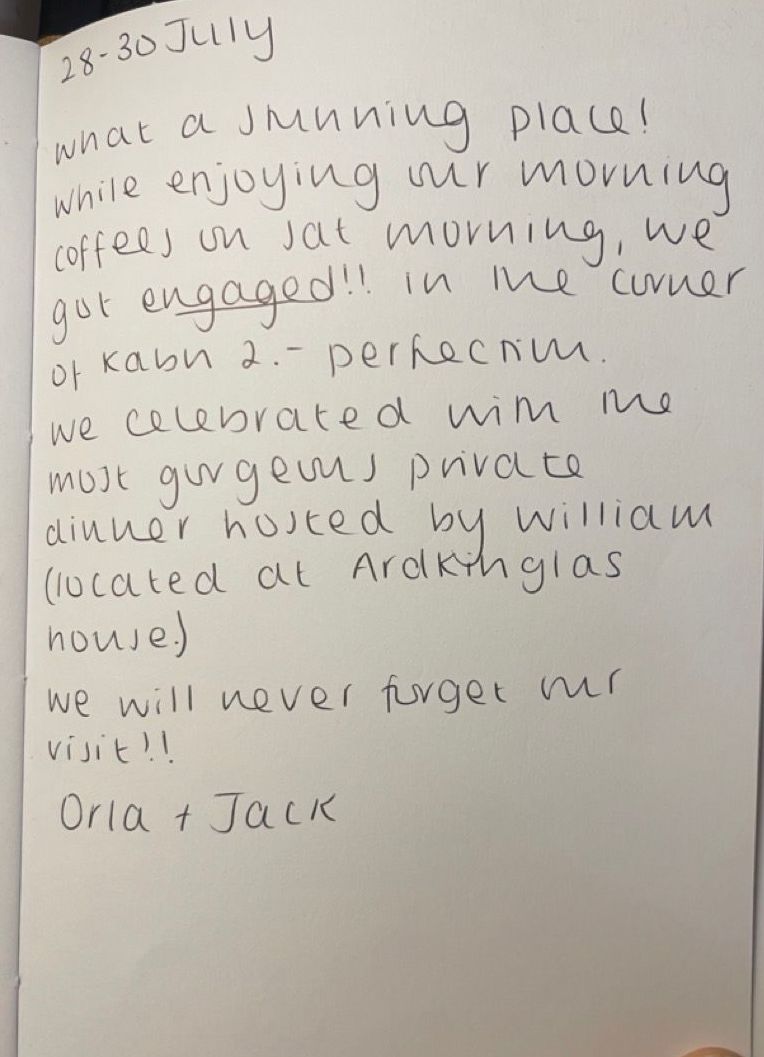 28-30 July
what a stunning place!
while enjoying our morning
coffees on sat morning, we
got engaged!! in the corner
of Kabn 2. - perfection.
we celebrated with the
most gorgeous private
dinner hosted by William
(located at Ardkinglas
house.)
we will never forget our
visit!!
Orla + Jack